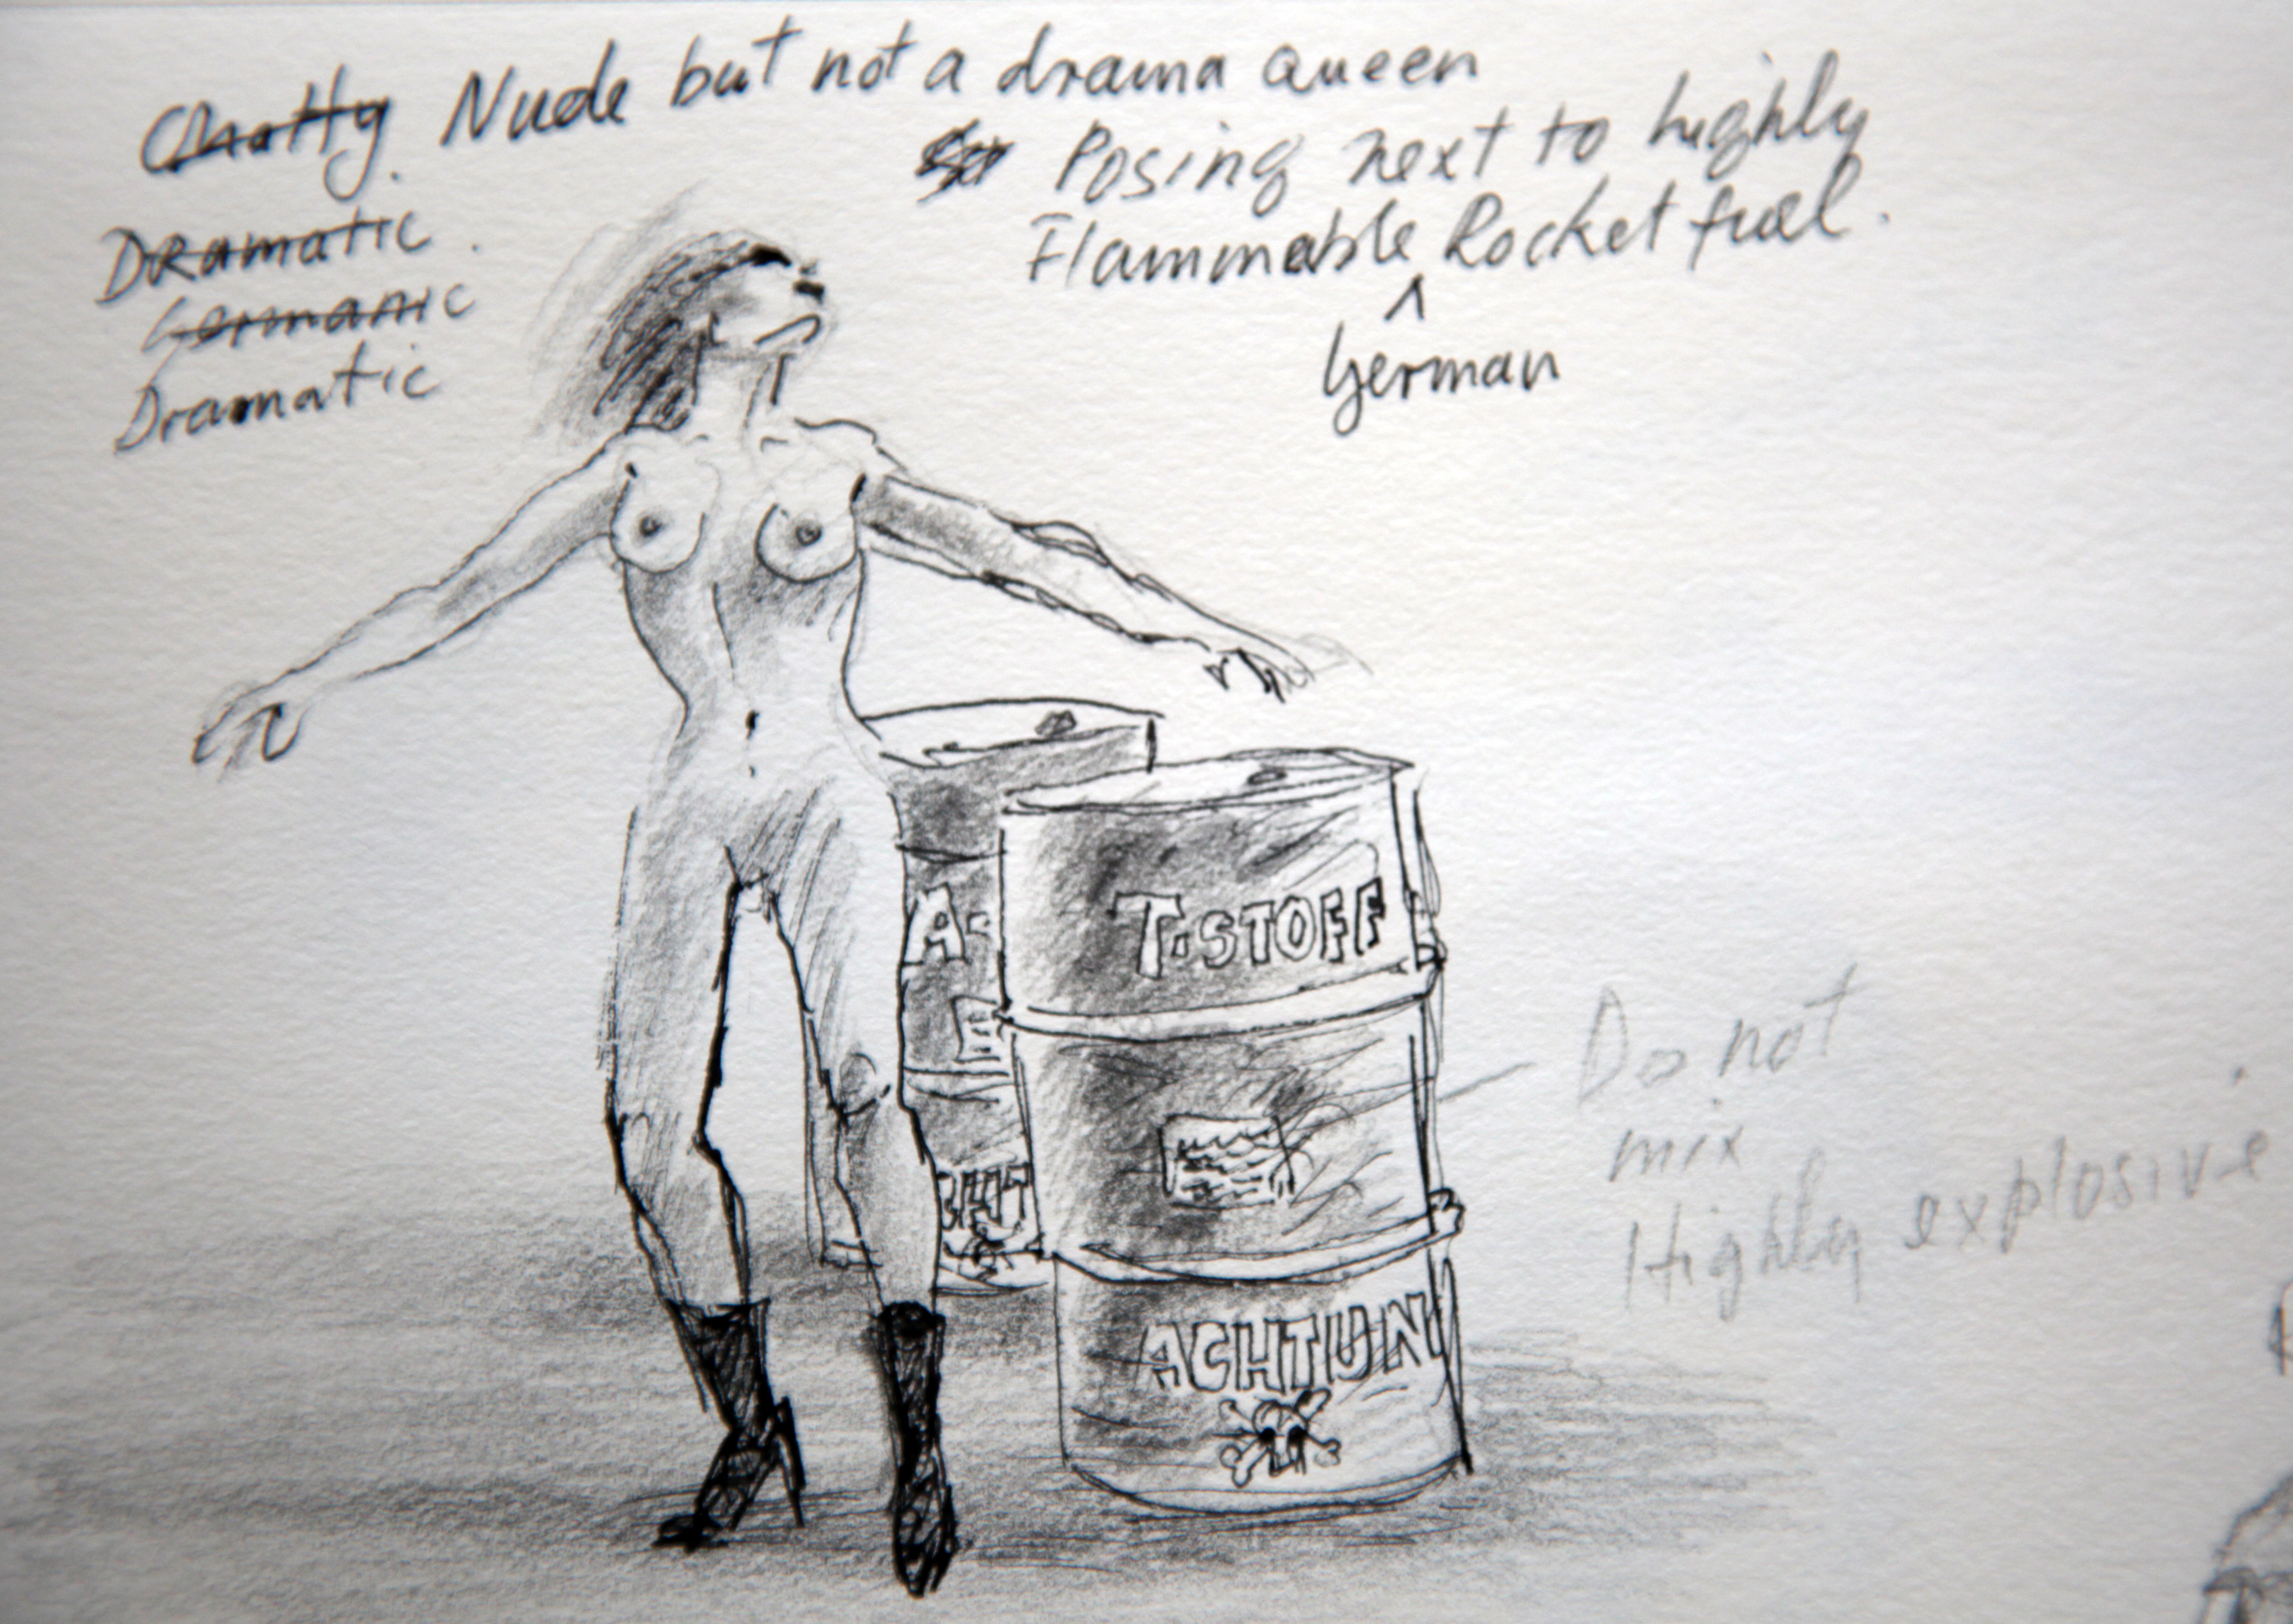 Chatty Nude but not a drama queen
Posing next to highly
Dramatic.
Flammable Rocket fuel.
Germanic
German
Dramatic
A-
T-STOFF
Do not
mix
Highly explosive
ACHTUN